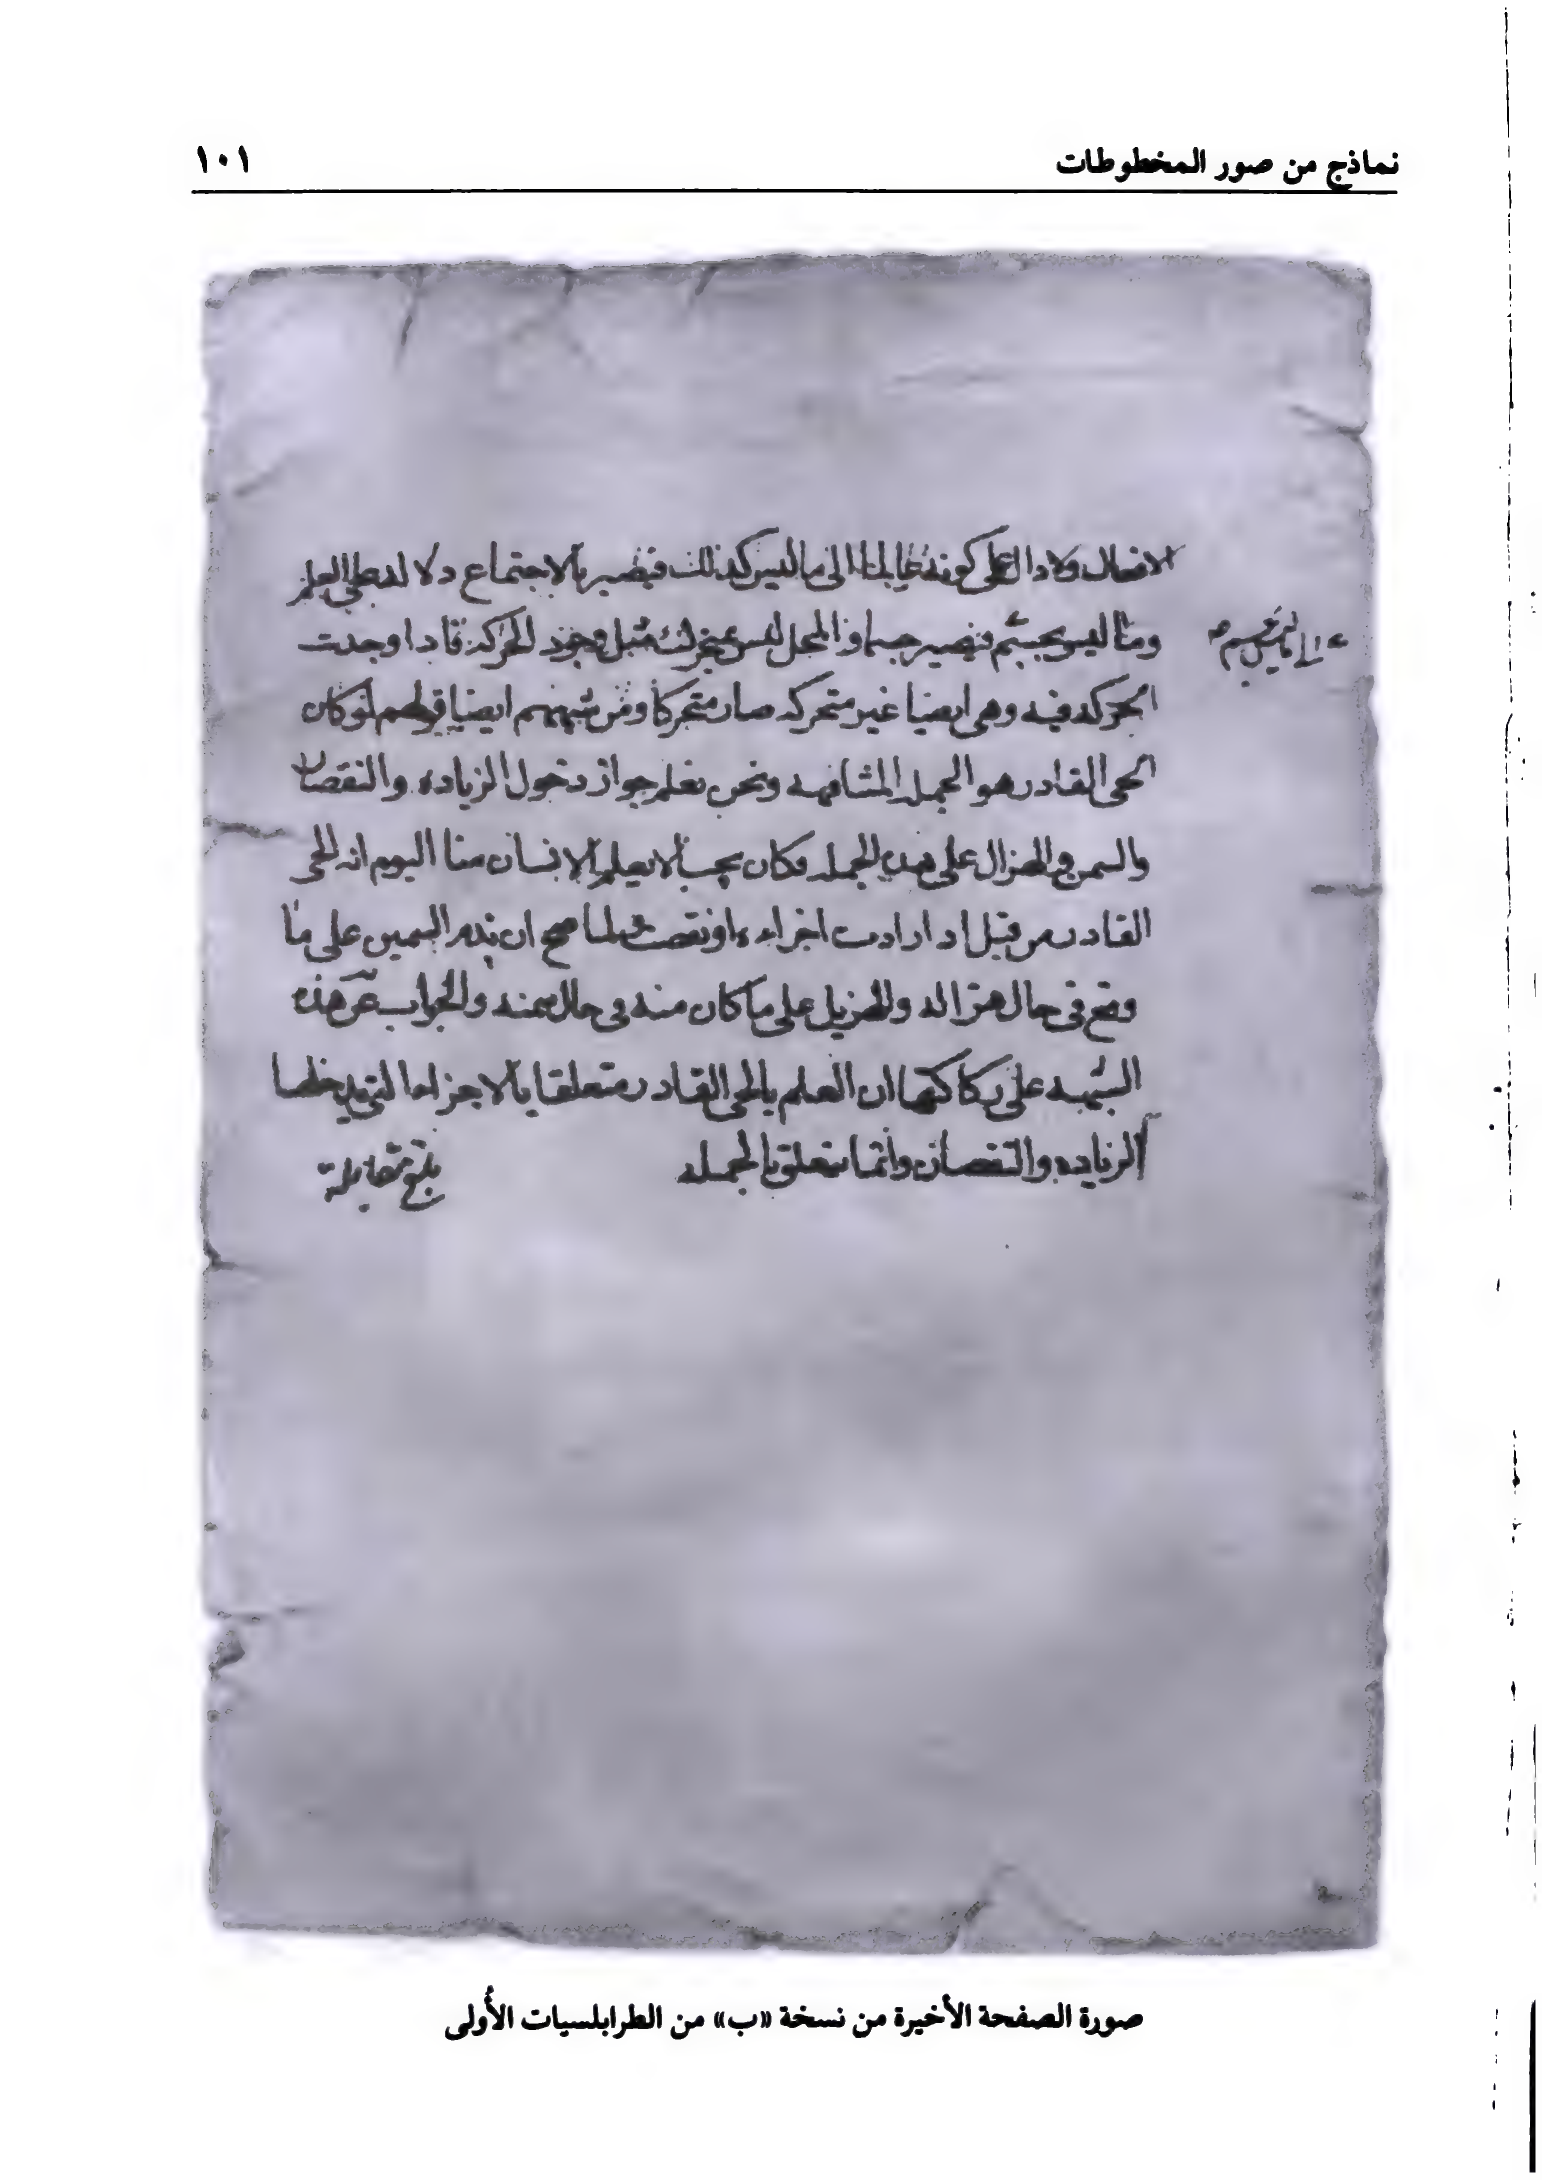 نماذج من صور المخطوطات
١٠١
الافعال ولا دال على كونه عالما الى ما ليس كذلك فيصير بالاجتماع دلالة على العلم
وما ليس بجسم فيصير جسما والمحل ليس بمتحرك قبل وجود الحركة فاذا وجدت
الحركه فيه وهى ايضا غير متحركه صار متحركا ومن شبههم ايضا قولهم لو كان
الحى القادر هو الجمله المشافهه ونحن نعلم جواز دخول الزياده والنقصان
والسمن والهزال على هذه الجمله فكان يجب الا يعلم الانسان منا اليوم انه الحى
القادر من قبل اذا زادت اجزاءه او نقصت ولما صح ان يذم السمين على ما
وقع فى حال هزاله والهزيل على ما كان منه فى حال سمنه والجواب عن هذه
الشبهه على ركاكتها ان العلم بالحى القادر متعلقا بالاجزاء التى يدخلها
الزياده والنقصان وانما يتعلق بالجمله
بلغ مقابلة
صورة الصفحة الأخيرة من نسخة «ب» من الطرابلسيات الأُولى